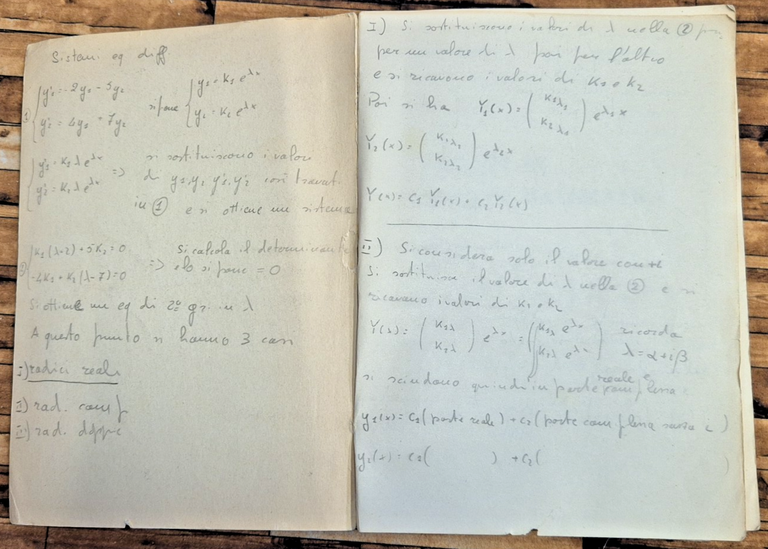 Sistemi eq diff.
① { y'₁ = -2y₁ - 5y₂
y'₂ = 4y₁ + 7y₂
si pone { y₁ = K₁ e^λx
y₂ = K₂ e^λx
{ y'₁ = K₁ λ e^λx
y'₂ = K₂ λ e^λx
=> si sostituiscono i valori
di y₁, y₂ y'₁, y'₂ così trovati
in ① e si ottiene un sistema
② { K₁(λ+2) + 5K₂ = 0
-4K₁ + K₂(λ-7) = 0
=> Si calcola il determinante
e lo si pone = 0
Si ottiene un eq di 2° gr. in λ
A questo punto si hanno 3 casi
I) radici reali
II) rad. comp
III) rad. doppie
I) Si sostituiscono i valori di λ nella ②
per un valore di λ poi per l'altro
e si ricavano i valori di K₁ e K₂
Poi si ha Y₁(x) = ( K₁λ₁ K₂λ₁ ) e^λ₁x
Y₂(x) = ( K₁λ₂ K₂λ₂ ) e^λ₂x
Y(x) = C₁ Y₁(x) + C₂ Y₂(x)
II) Si considera solo il valore con +i
Si sostituisce il valore di λ nella ② e si
ricavano i valori di K₁ e K₂
Y(λ) = ( K₁λ K₂λ ) e^λx = ( K₁λ e^λx K₂λ e^λx ) ricorda
λ = α + iβ
si scindono quindi in parte reale e complessa
y₁(x) = C₁(parte reale) + C₂(parte complessa senza i)
y₂(x) = C₁( ) + C₂( )